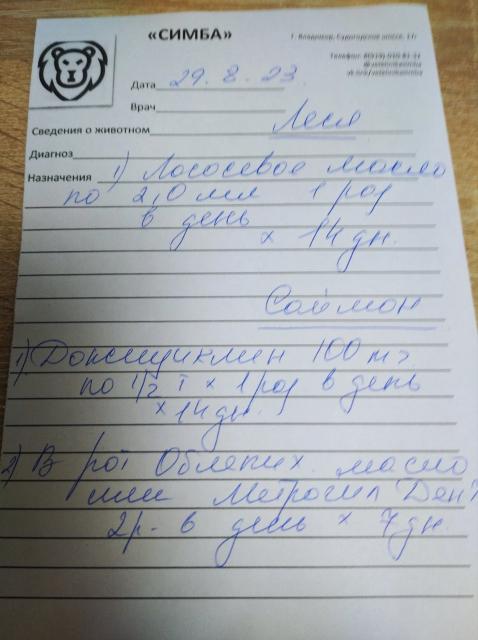 «СИМБА»
г. Владимир, Судогодское шоссе, 11г
Дата 29.8.23
Врач
Сведения о животном Леся
Диагноз
Назначения 1) Лососевое масло
по 2,0 мл 1 раз
в день
x 14 дн.
Саймон
1) Доксициклин 100 мг
по 1/2 т x 1 раз в день
x 14 дн.
2) В рот Облепих. масло
или Метрогил Дент
2 р. в день x 7 дн.